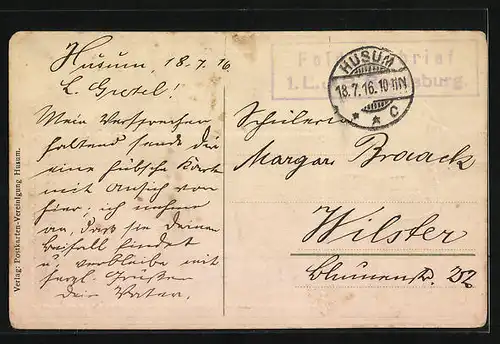 Husum, 18.7.16
L. Gretel!
Mein Versprechen
haltend sende dir
eine hübsche Karte
mit Ansich von
hier; ich nehme
an, dass sie deinen
Beifall findet
u. verbleibe mit
herzl. Grüßen
Dein Vater.
Verlag: Postkarten-Vereinigung Husum.
HUSUM
18.7.16.10-11N
* * C
Schülerin
Margar. Braack
Wilster
Blumenstr.